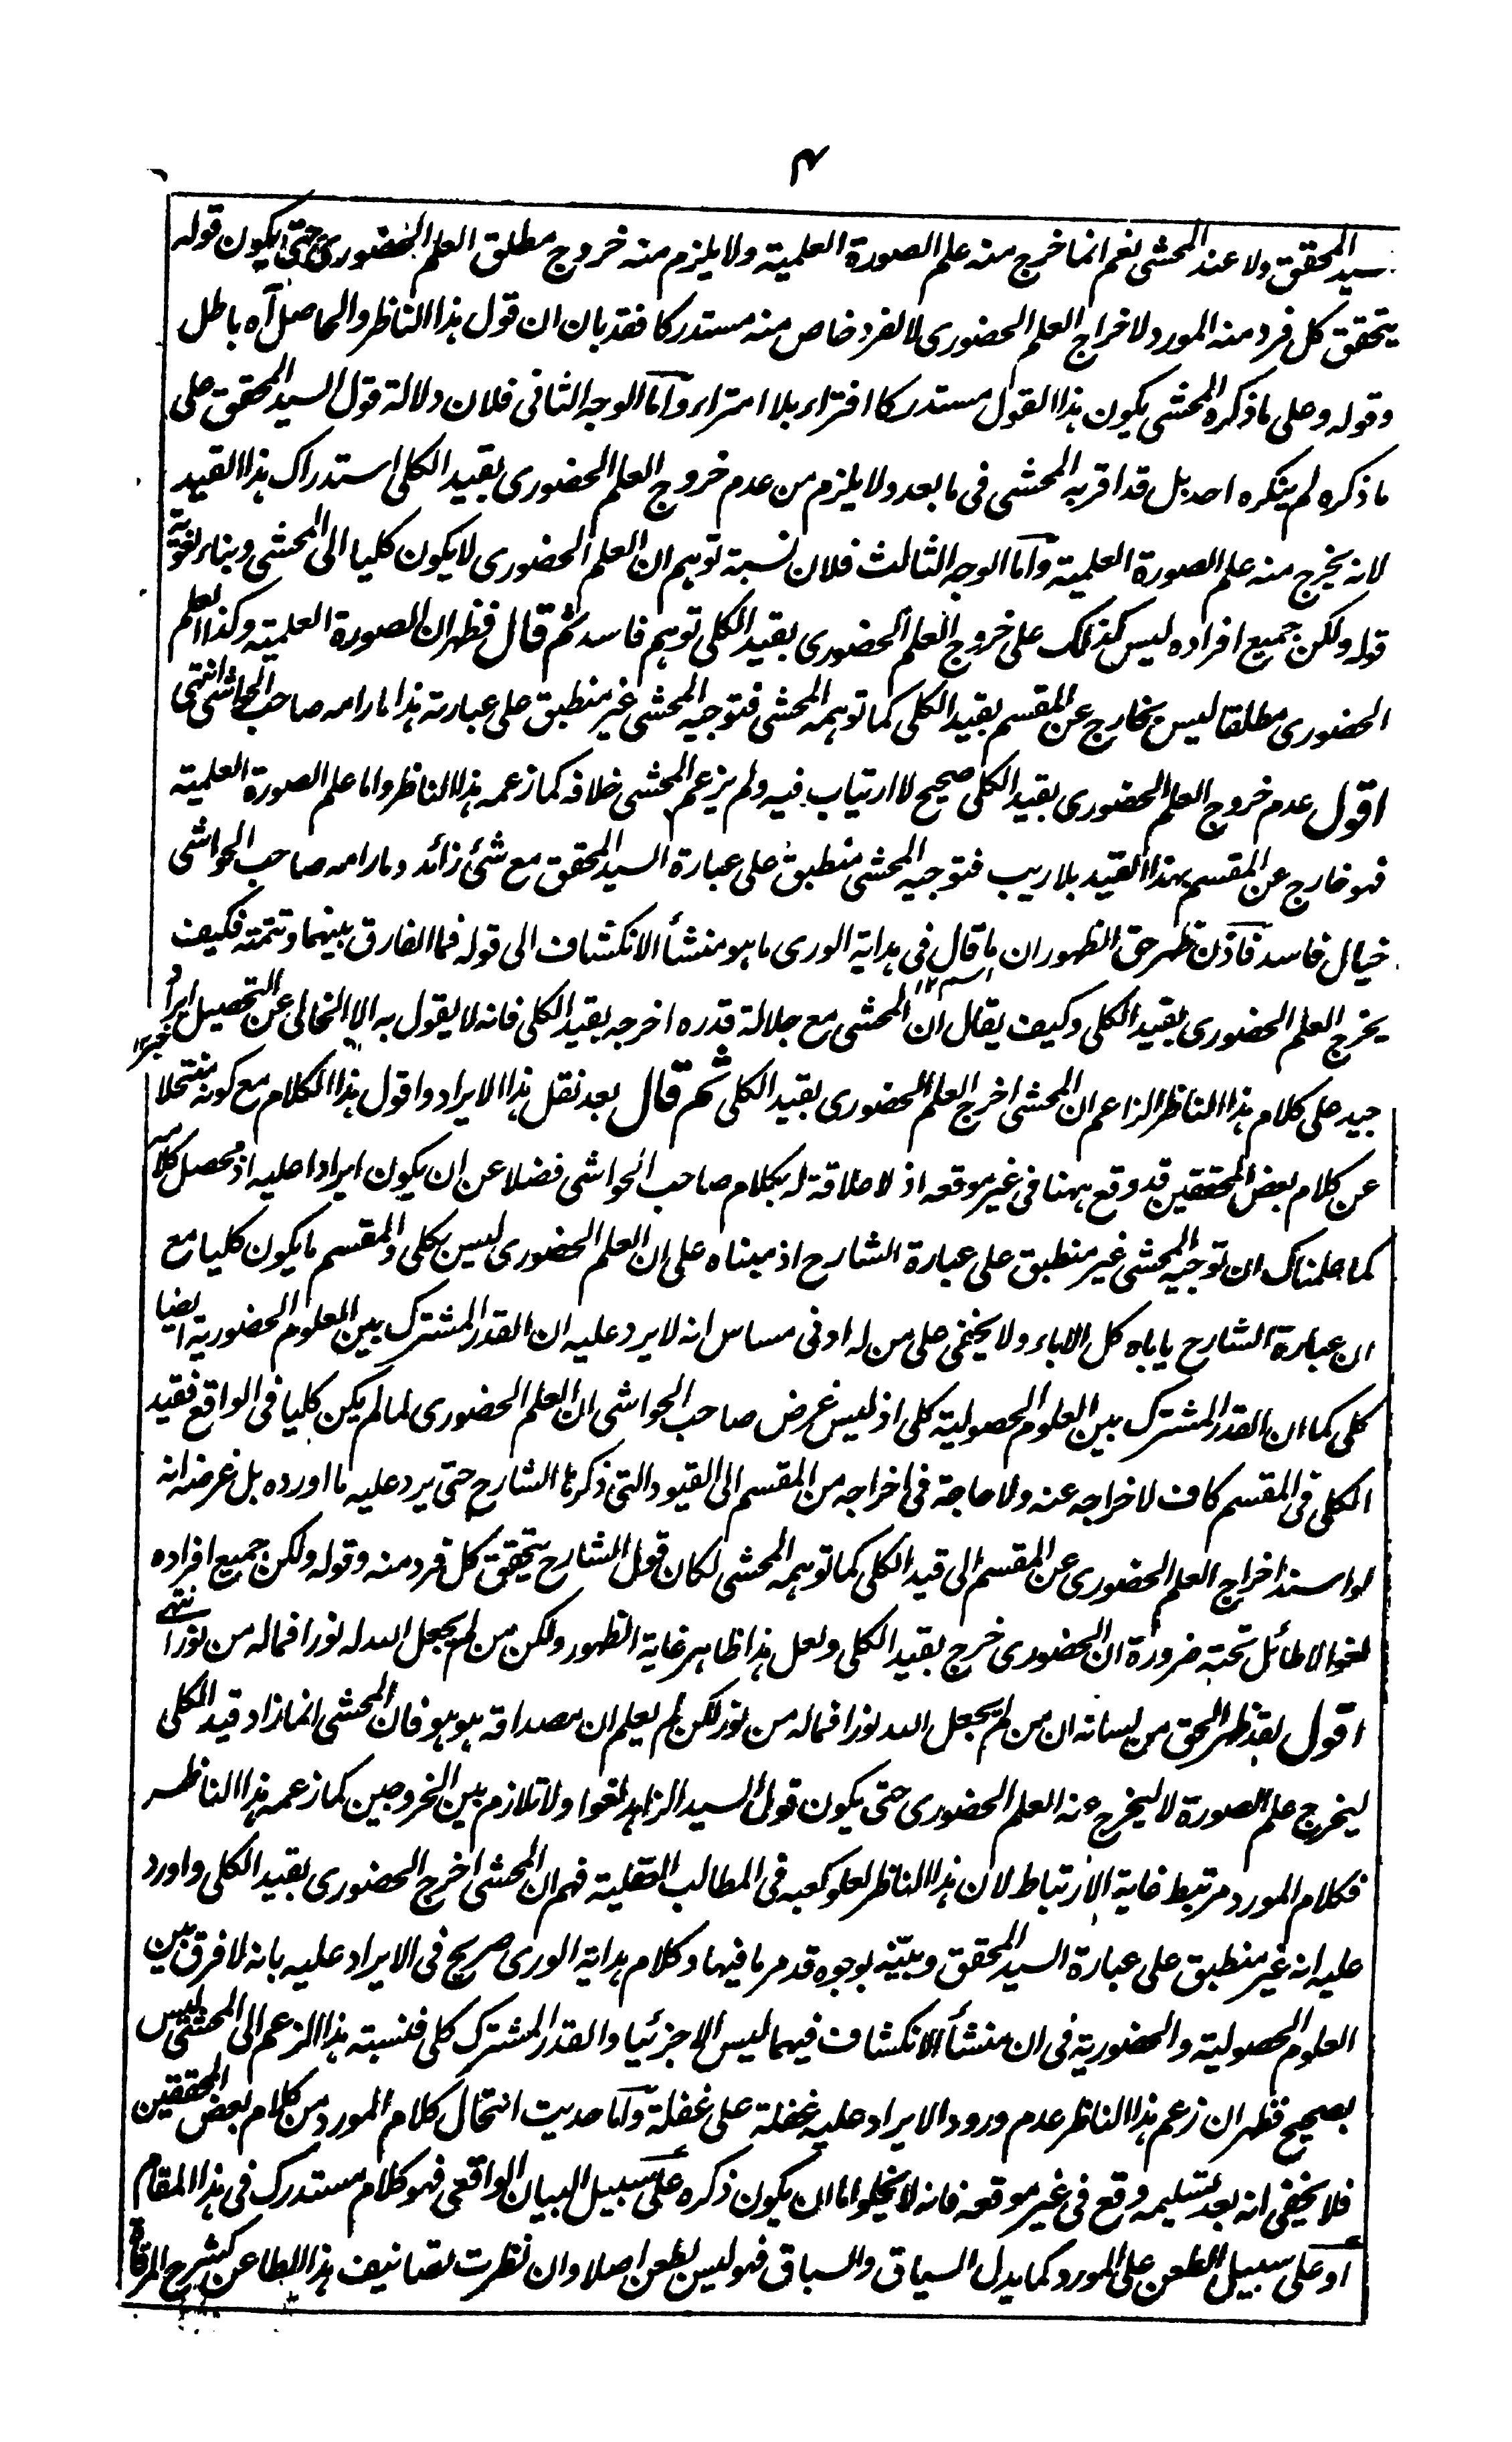 ۴
السيد المحقق ولا عند المحشى نعم انما خرج منه علم الصورة العلمية ولا يلزم منه خروج مطلق العلم الحضورى حتى يكون قوله
يتحقق كل فرد منه المورد لاخراج العلم الحضورى لا لفرد خاص منه مستدركا فقد بان ان قول هذا الناظر والحاصل آه باطل
وقوله وعلى ما ذكره المحشى يكون هذا القول مستدركا افتراء بلا امتراء وآما الوجه الثانى فلان دلالة قول السيد المحقق على
ما ذكره لم ينكره احد بل قد اقر به المحشى فى ما بعد ولا يلزم من عدم خروج العلم الحضورى بقيد الكلى استدراك هذا القيد
لانه يخرج منه علم الصورة العلمية وآما الوجه الثالث فلان نسبة توهم ان العلم الحضورى لا يكون كليا الى المحشى وبناء لغوية
قوله ولكن جميع افراده ليس كذلك على خروج العلم الحضورى بقيد الكلى توهم فاسد ثم قال فظهر ان الصورة العلمية وكذا العلم
الحضورى مطلقا ليس بخارج عن المقسم بقيد الكلى كما توهمه المحشى فتوجيه المحشى غير منطبق على عبارته هذا ما رامه صاحب الحواشى انتهى
اقول عدم خروج العلم الحضورى بقيد الكلى صحيح لا ارتياب فيه ولم يزعم المحشى خلافه كما زعمه هذا الناظر واما علم الصورة العلمية
فهو خارج عن المقسم بهذا القيد بلا ريب فتوجيه المحشى منطبق على عبارة السيد المحقق مع شئ زائد وما رامه صاحب الحواشى
خيال فاسد فآذن ظهر حق الظهور ان ما قال فى هداية الورى ما هو منشأ الانكشاف الى قوله فما الفارق بينهما وتتمته فكيف
اسم ١٢
يخرج العلم الحضورى بقيد الكلى وكيف يقال ان المحشى مع جلالة قدره اخرجه بقيد الكلى فانه لا يقول به الا الخالى عن التحصيل ايراد
خبر ١٢
جيد على كلام هذا الناظر الزاعم ان المحشى اخرج العلم الحضورى بقيد الكلى ثم قال بعد نقل هذا الايراد واقول هذا الكلام مع كونه منتحلا
عن كلام بعض المحققين قد وقع ههنا فى غير موقعه اذ لا علاقة له بكلام صاحب الحواشى فضلا عن ان يكون ايرادا عليه اذ محصل كلامه
كما علمناك ان توجيه المحشى غير منطبق على عبارة الشارح اذ مبناه على ان العلم الحضورى ليس بكلى والمقسم ما يكون كليا مع
ان عبارة الشارح ياباه كل الاباء ولا يخفى على من له ادنى مساس انه لا يرد عليه ان القدر المشترك بين العلوم الحضورية ايضا
كلى كما ان القدر المشترك بين العلوم الحصولية كلى اذ ليس غرض صاحب الحواشى ان العلم الحضورى لما لم يكن كليا فى الواقع فقيد
الكلى فى المقسم كاف لاخراجه عنه ولا حاجة فى اخراجه من المقسم الى القيود التى ذكرها الشارح حتى يرد عليه ما اورده بل غرضه انه
لو اسند اخراج العلم الحضورى عن المقسم الى قيد الكلى كما توهمه المحشى لكان قول الشارح يتحقق كل فرد منه وقوله ولكن جميع افراده
لغوا لا طائل تحته ضرورة ان الحضورى خرج بقيد الكلى ولعل هذا ظاهر غاية الظهور ولكن من لم يجعل الله له نورا فما له من نور انتهى
اقول لقد ظهر الحق من لسانه ان من لم يجعل الله نورا فما له من نور لكن لم يعلم ان مصداقه هو هو فان المحشى انما زاد قيد الكلى
ليخرج علم الصورة لا ليخرج عنه العلم الحضورى حتى يكون قول السيد الزاهد لغوا ولا تلازم بين الخروجين كما زعمه هذا الناظر
فكلام المورد مرتبط غاية الارتباط لان هذا الناظر لعلو كعبه فى المطالب العقلية فهم ان المحشى اخرج الحضورى بقيد الكلى واورد
عليه انه غير منطبق على عبارة السيد المحقق وبيّنه بوجوه قد مر ما فيها وكلام هداية الورى صريح فى الايراد عليه بانه لا فرق بين
العلوم الحصولية والحضورية فى ان منشأ الانكشاف فيهما ليس الا جزئيا والقدر المشترك كلى فنسبة هذا الزعم الى المحشى ليس
بصحيح فظهر ان زعم هذا الناظر عدم ورود الايراد عليه غفلة على غفلة وآما حديث انتحال كلام المورد من كلام بعض المحققين
فلا يخفى انه بعد تسليمه وقع فى غير موقعه فانه لا يخلو اما ان يكون ذكره على سبيل البيان الواقعى فهو كلام مستدرك فى هذا المقام
أو على سبيل الطعن على المورد كما يدل السياق والسباق فهو ليس بطعن اصلا وان نظرت تصانيف هذا الطاعن كشرح المرقاة